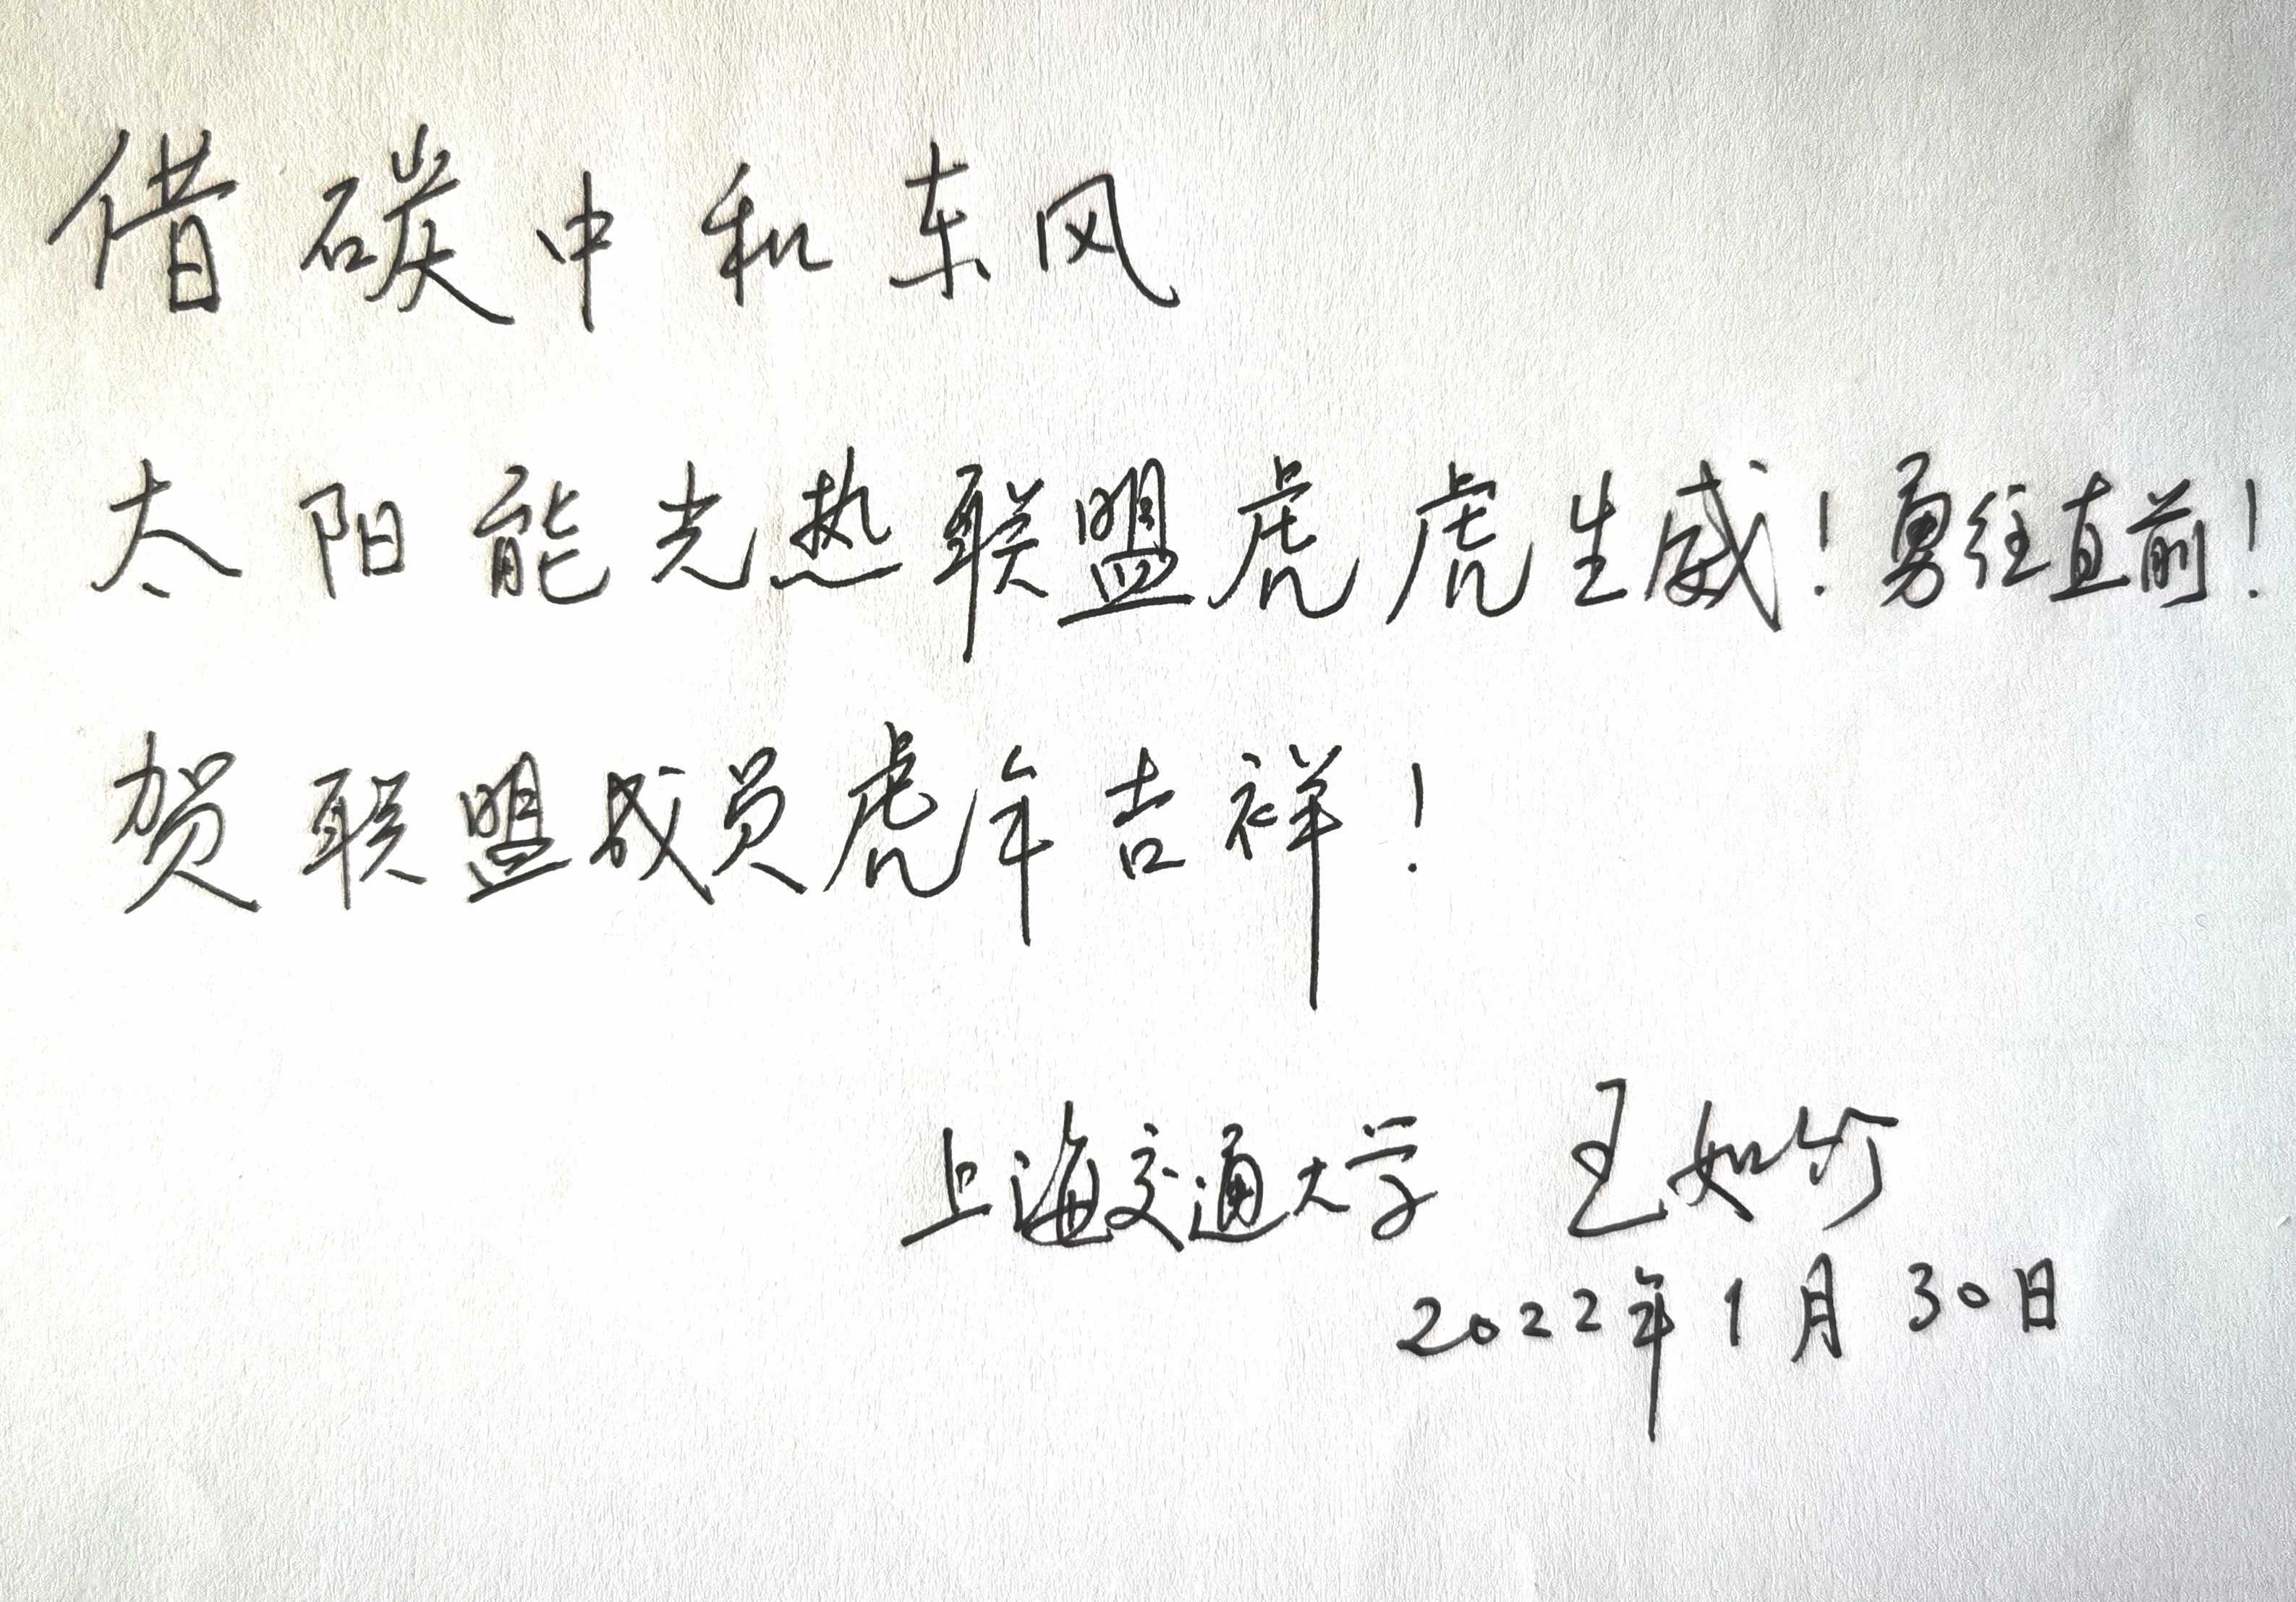 借碳中和东风
太阳能光热联盟虎虎生威！勇往直前！
贺联盟成员虎年吉祥！
上海交通大学 王如竹
2022年1月30日